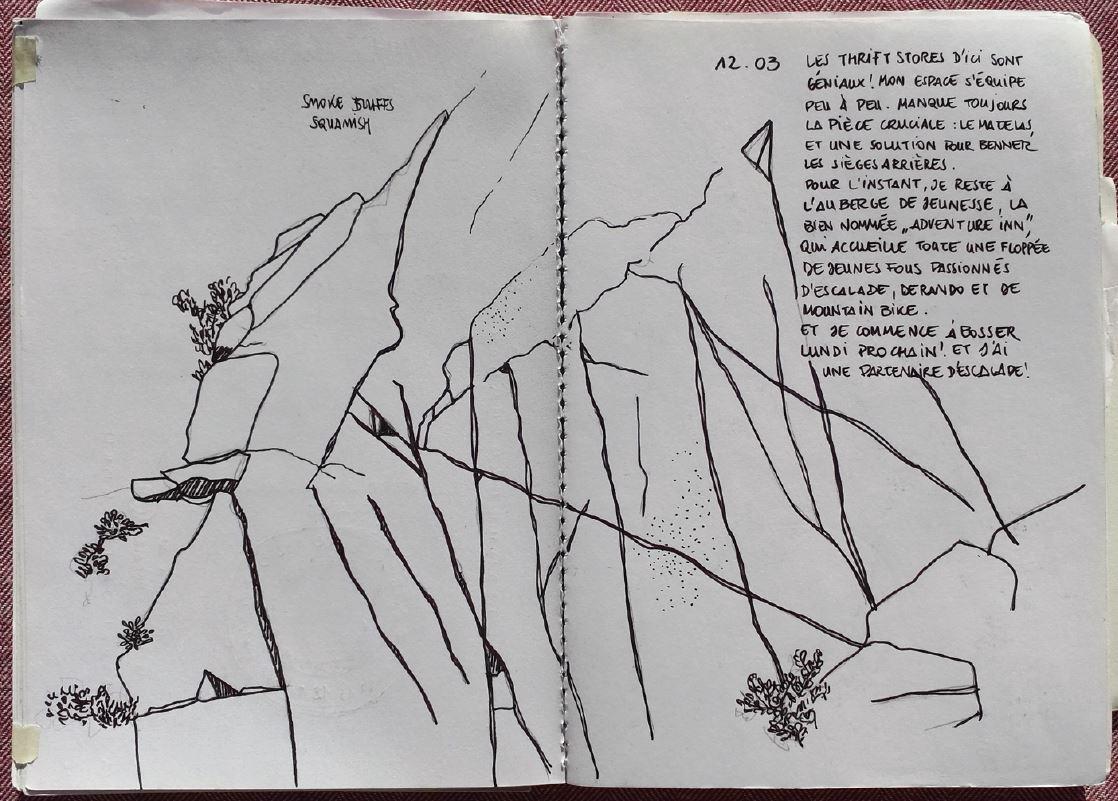 SMOKE BLUFFS
SQUAMISH
12.03
LES THRIFT STORES D'ICI SONT
GÉNIAUX! MON ESPACE S'ÉQUIPE
PEU À PEU. MANQUE TOUJOURS
LA PIÈCE CRUCIALE : LE MATELAS,
ET UNE SOLUTION POUR BENNER
LES SIÈGES ARRIÈRES.
POUR L'INSTANT, JE RESTE À
L'AUBERGE DE JEUNESSE, LA
BIEN NOMMÉE „ADVENTURE INN",
QUI ACCUEILLE TOUTE UNE FLOPPÉE
DE JEUNES FOUS PASSIONNÉS
D'ESCALADE, DE RANDO ET DE
MOUNTAIN BIKE.
ET JE COMMENCE À BOSSER
LUNDI PROCHAIN! ET J'AI
UNE PARTENAIRE D'ESCALADE!